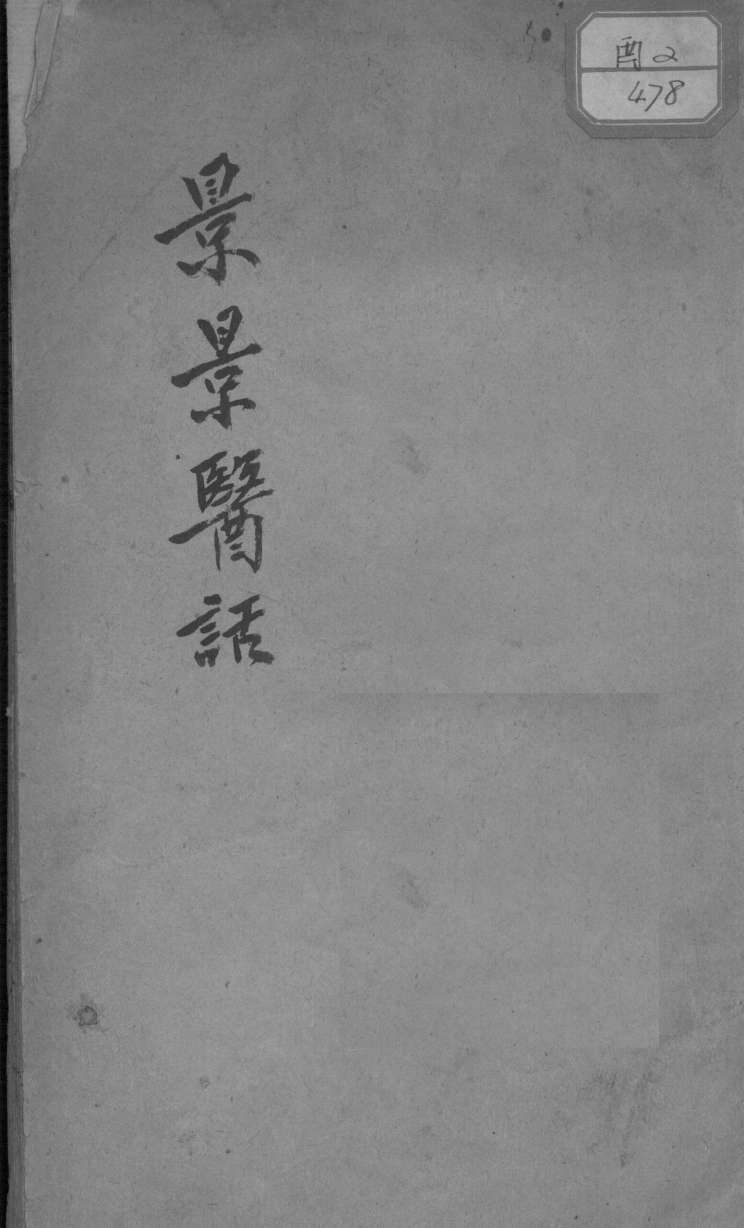 酉2
478
景景醫話